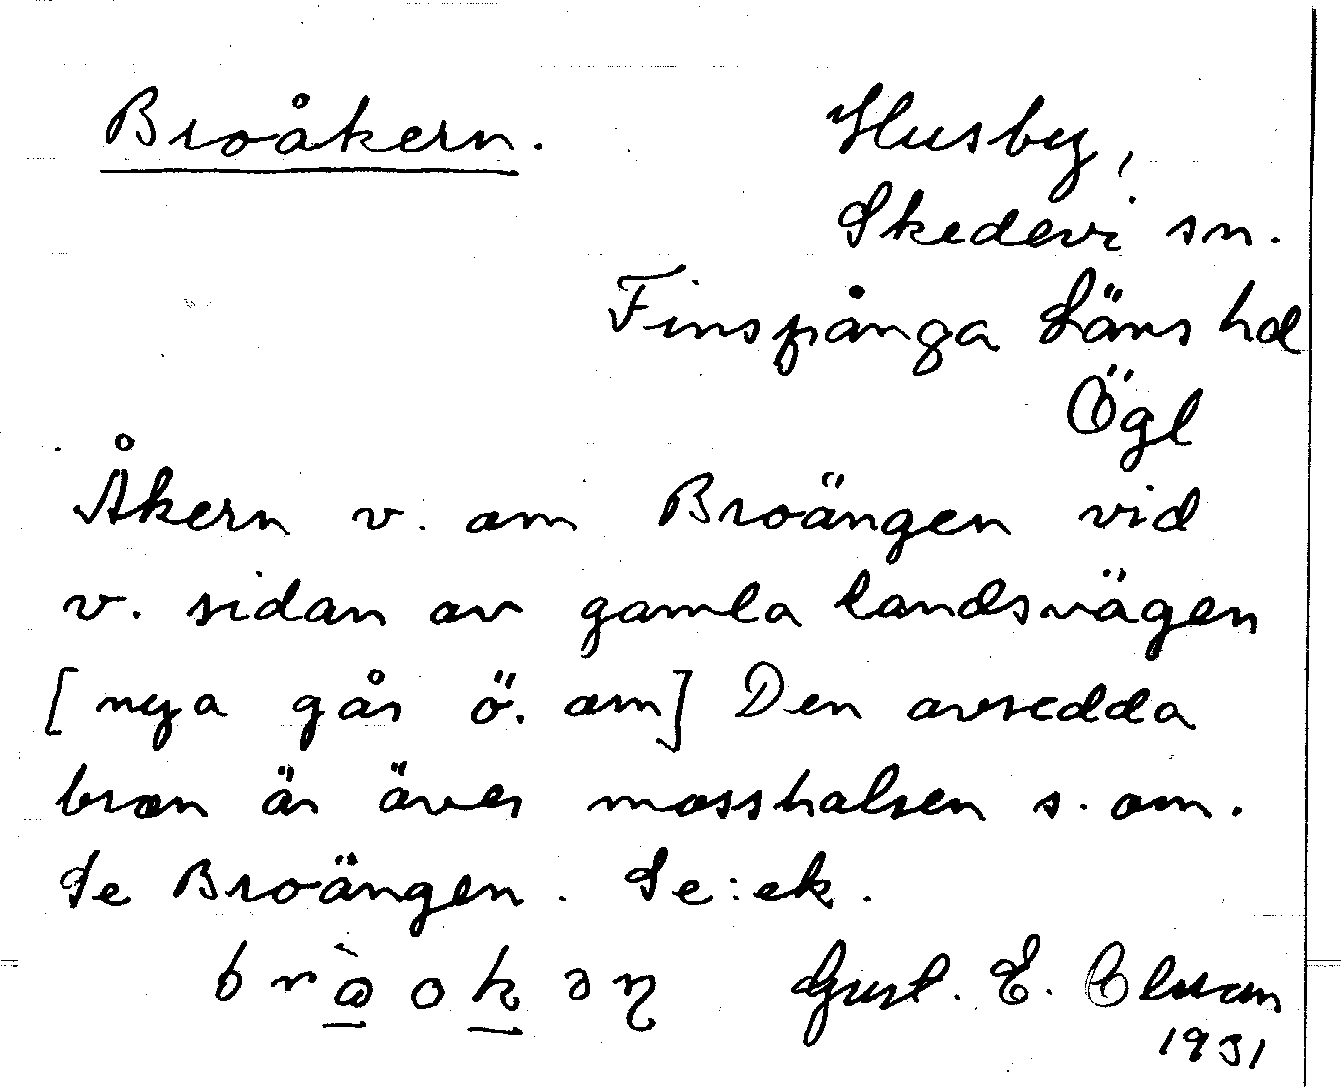 Broåkern.
Husby,
Skedevi sn.
Finspånga Läns hd
Ögl
Åkern v. om Broängen vid
v. sidan av gamla landsvägen
[nya går ö. om] Den avsedda
bron är över mosshalsen s. om.
Se Broängen. Se: ek.
Gust. E. Olson
1931